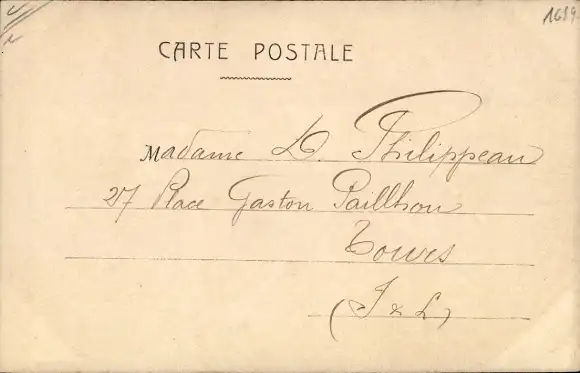 1639
CARTE POSTALE
Madame D. Philippeau
27 Place Gaston Pailhou
Tours
(I & L)